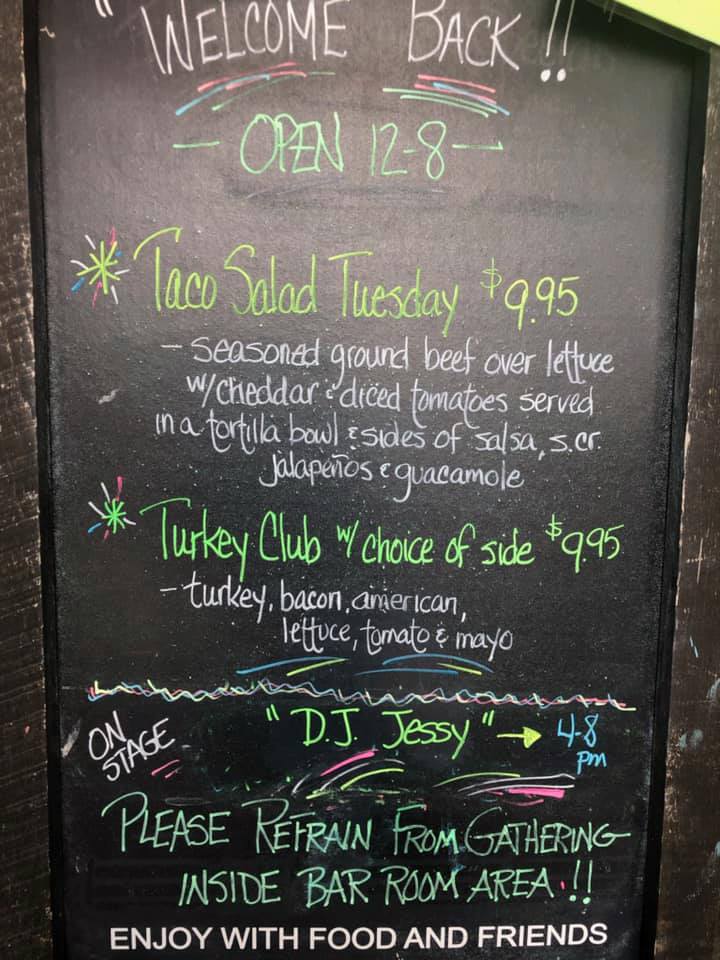 "WELCOME BACK!!
- OPEN 12-8 -
* Taco Salad Tuesday $9.95
- seasoned ground beef over lettuce
w/cheddar & diced tomatoes served
in a tortilla bowl & sides of salsa, s.cr.
jalapeños & guacamole
* Turkey Club w/ choice of side $9.95
- turkey, bacon, american,
lettuce, tomato & mayo
ON STAGE "D.J. Jessy" → 4-8 pm
PLEASE REFRAIN FROM GATHERING
INSIDE BAR ROOM AREA.!!
ENJOY WITH FOOD AND FRIENDS